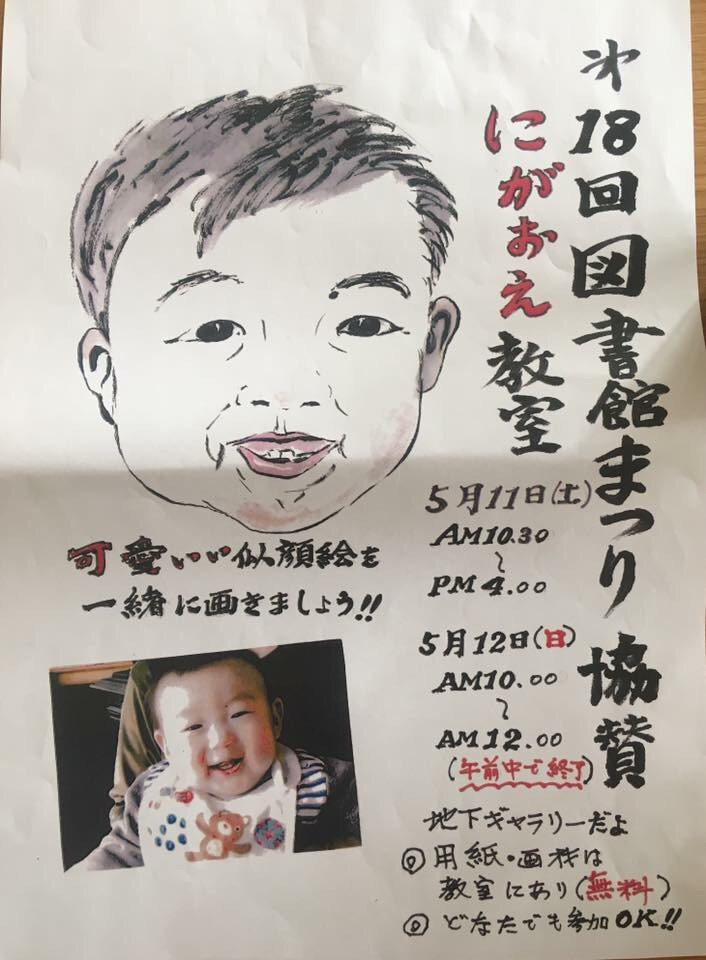 㐧18回図書館まつり協賛
にがおえ教室
5月11日(土)
AM10.30
〜
PM4.00
5月12日(日)
AM10.00
〜
AM12.00
(午前中で終了)
地下ギャラリーだよ
◎用紙・画材は
教室にあり(無料)
◎どなたでも参加OK!!
可愛いい似顔絵を
一緒に画きましょう!!